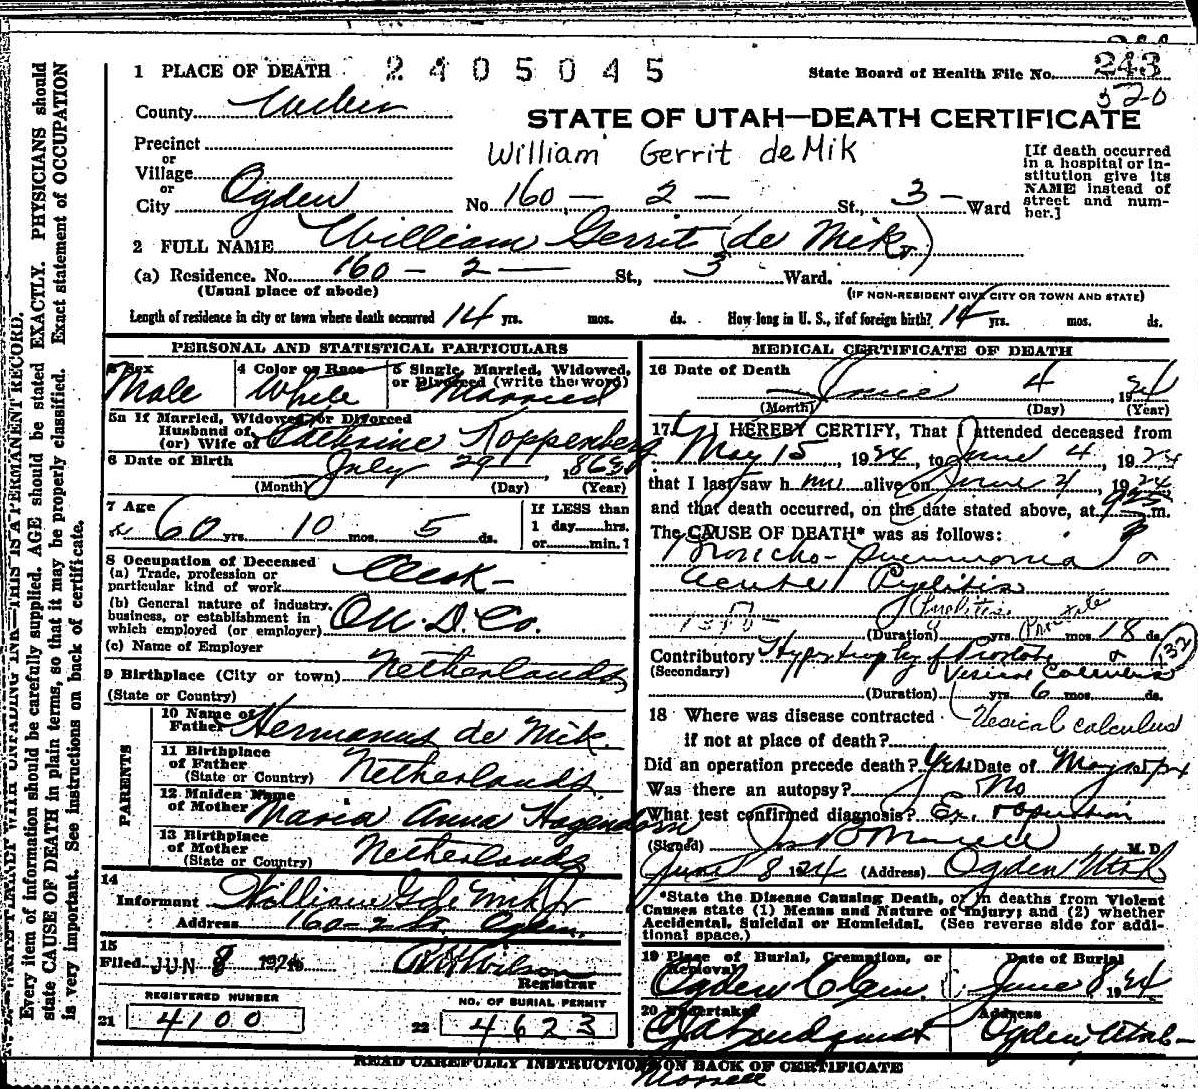 243
520
1 PLACE OF DEATH 2405045 State Board of Health File No.
County Weber
STATE OF UTAH—DEATH CERTIFICATE
Precinct
or
Village
or
City Ogden No. 160 – 2 – St., 3 – Ward
William Gerrit deMik
[If death occurred
in a hospital or in-
stitution give its
NAME instead of
street and num-
ber.]
2 FULL NAME William Gerrit (de Mik)
(a) Residence. No. 160 – 2 – St., 3 Ward.
(Usual place of abode) (IF NON-RESIDENT GIVE CITY OR TOWN AND STATE)
Length of residence in city or town where death occurred 14 yrs. mos. ds. How long in U. S., if of foreign birth? 14 yrs. mos. ds.
PERSONAL AND STATISTICAL PARTICULARS
3 Sex
Male
4 Color or Race
White
5 Single, Married, Widowed,
or Divorced (write the word)
Married
5a If Married, Widowed, or Divorced
Husband of
(or) Wife of Catherine Koppenberg
6 Date of Birth July 29
(Month) (Day) (Year)
7 Age
60 yrs. 10 mos. 5 ds.
If LESS than
1 day hrs.
or min.?
8 Occupation of Deceased
(a) Trade, profession or
particular kind of work Clerk
(b) General nature of industry,
business, or establishment in
which employed (or employer)
(c) Name of Employer
9 Birthplace (City or town) Netherlands
(State or Country)
PARENTS
10 Name of
Father Hermanus de Mik.
11 Birthplace
of Father Netherlands.
(State or Country)
12 Maiden Name
of Mother Maria Anna Hagendorn
13 Birthplace
of Mother Netherlands
(State or Country)
14
Informant William G de Mik Jr
Address 160–2 St. Ogden.
15
Filed JUN 8 1924 Wilson
Registrar
REGISTERED NUMBER
21 4100
NO. OF BURIAL PERMIT
22 4623
MEDICAL CERTIFICATE OF DEATH
16 Date of Death
June 4, 1924
(Month) (Day) (Year)
17. I HEREBY CERTIFY, That I attended deceased from
May 15, 1924, to June 4, 1924
that I last saw h im alive on June 4, 1924
and that death occurred, on the date stated above, at m.
The CAUSE OF DEATH* was as follows:
Broncho-pneumonia &
acute Pyelitis
(Duration) yrs. mos. 18 ds.
Contributory Hypertrophy of Prostate & 132
(Secondary) Vesical Calculus
(Duration) yrs. 6 mos. ds.
18 Where was disease contracted Vesical calculus
if not at place of death?
Did an operation precede death? Yes. Date of May
Was there an autopsy? No
What test confirmed diagnosis? Ex. & operation
(Signed) Morrell M. D.
June 8 1924 (Address) Ogden Utah
*State the Disease Causing Death, or in deaths from Violent
Causes state (1) Means and Nature of Injury; and (2) whether
Accidental, Suicidal or Homicidal. (See reverse side for addi-
tional space.)
19 Place of Burial, Cremation, or
Removal
Ogden Cem.
Date of Burial
June 8, 1924
20 Undertaker
Lindquist
Address
Ogden, Utah
READ CAREFULLY INSTRUCTIONS ON BACK OF CERTIFICATE
Morrell
THIS IS A PERMANENT RECORD.
Every item of information should be carefully supplied. AGE should be stated EXACTLY. PHYSICIANS should
state CAUSE OF DEATH in plain terms, so that it may be properly classified. Exact statement of OCCUPATION
is very important. See instructions on back of certificate.